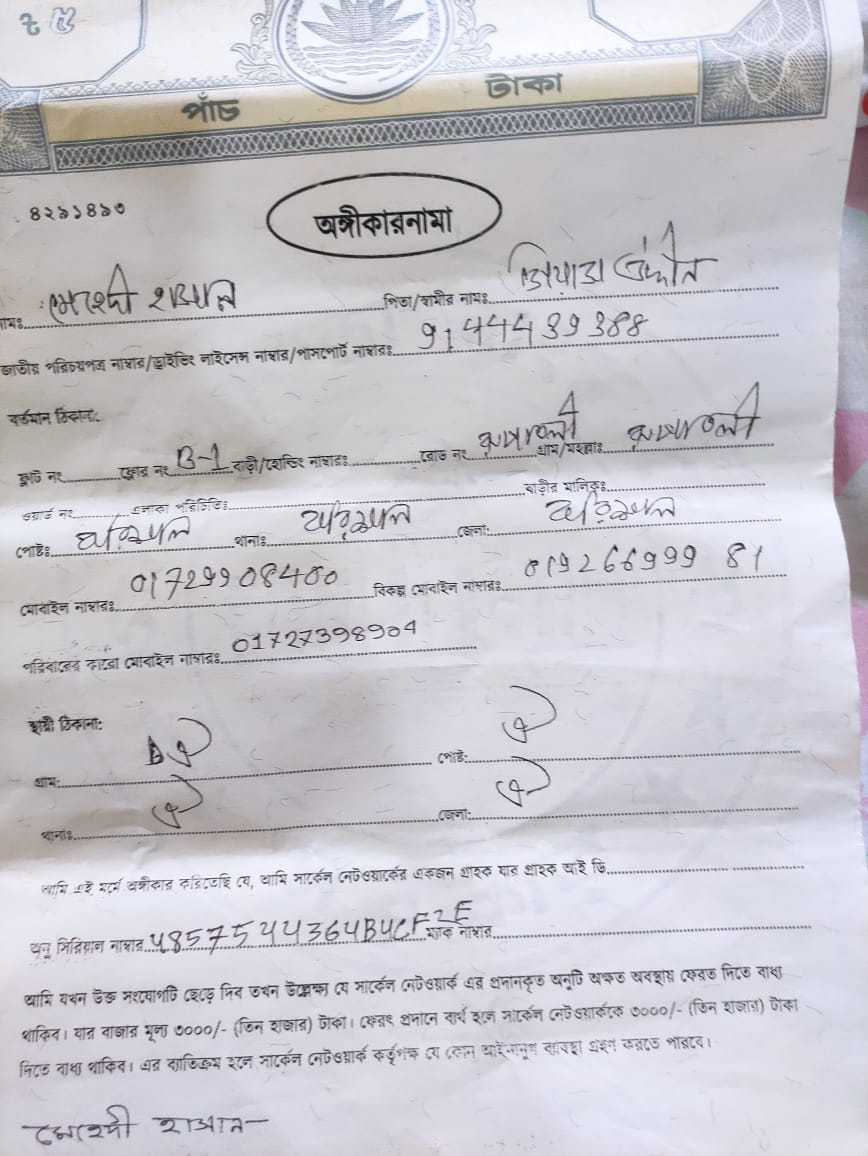 পাঁচ টাকা
৪২৯১৪৯৩
অঙ্গীকারনামা
নামঃ মেহেদী হাসান পিতা/স্বামীর নামঃ
জাতীয় পরিচয়পত্র নাম্বার/ড্রাইভিং লাইসেন্স নাম্বার/পাসপোর্ট নাম্বারঃ 9144439388
বর্তমান ঠিকানা:
ফ্লাট নং ফ্লোর নং B-1 বাড়ী/হোল্ডিং নাম্বারঃ রোড নং গ্রাম/মহল্লাঃ
ওয়ার্ড নং এলাকা পরিচিতিঃ বাড়ীর মালিকঃ
পোষ্টঃ বরিশাল থানাঃ বরিশাল জেলাঃ বরিশাল
মোবাইল নাম্বারঃ 01729908400 বিকল্প মোবাইল নাম্বারঃ 01926699981
পরিবারের কারো মোবাইল নাম্বারঃ 01727398904
স্থায়ী ঠিকানা:
গ্রাম: ঐ পোষ্ট: ঐ
থানাঃ ঐ জেলা: ঐ
আমি এই মর্মে অঙ্গীকার করিতেছি যে, আমি সার্কেল নেটওয়ার্কের একজন গ্রাহক যার গ্রাহক আই ডি
অনু সিরিয়াল নাম্বার 4857544364B4CF2E ম্যাক নাম্বার
আমি যখন উক্ত সংযোগটি ছেড়ে দিব তখন উল্লেক্ষ্য যে সার্কেল নেটওয়ার্ক এর প্রদানকৃত অনুটি অক্ষত অবস্থায় ফেরত দিতে বাধ্য
থাকিব। যার বাজার মূল্য ৩০০০/- (তিন হাজার) টাকা। ফেরৎ প্রদানে ব্যর্থ হলে সার্কেল নেটওয়ার্ককে ৩০০০/- (তিন হাজার) টাকা
দিতে বাধ্য থাকিব। এর ব্যতিক্রম হলে সার্কেল নেটওয়ার্ক কর্তৃপক্ষ যে কোন আইনানুগ ব্যবস্থা গ্রহণ করতে পারবে।
মেহেদী হাসান